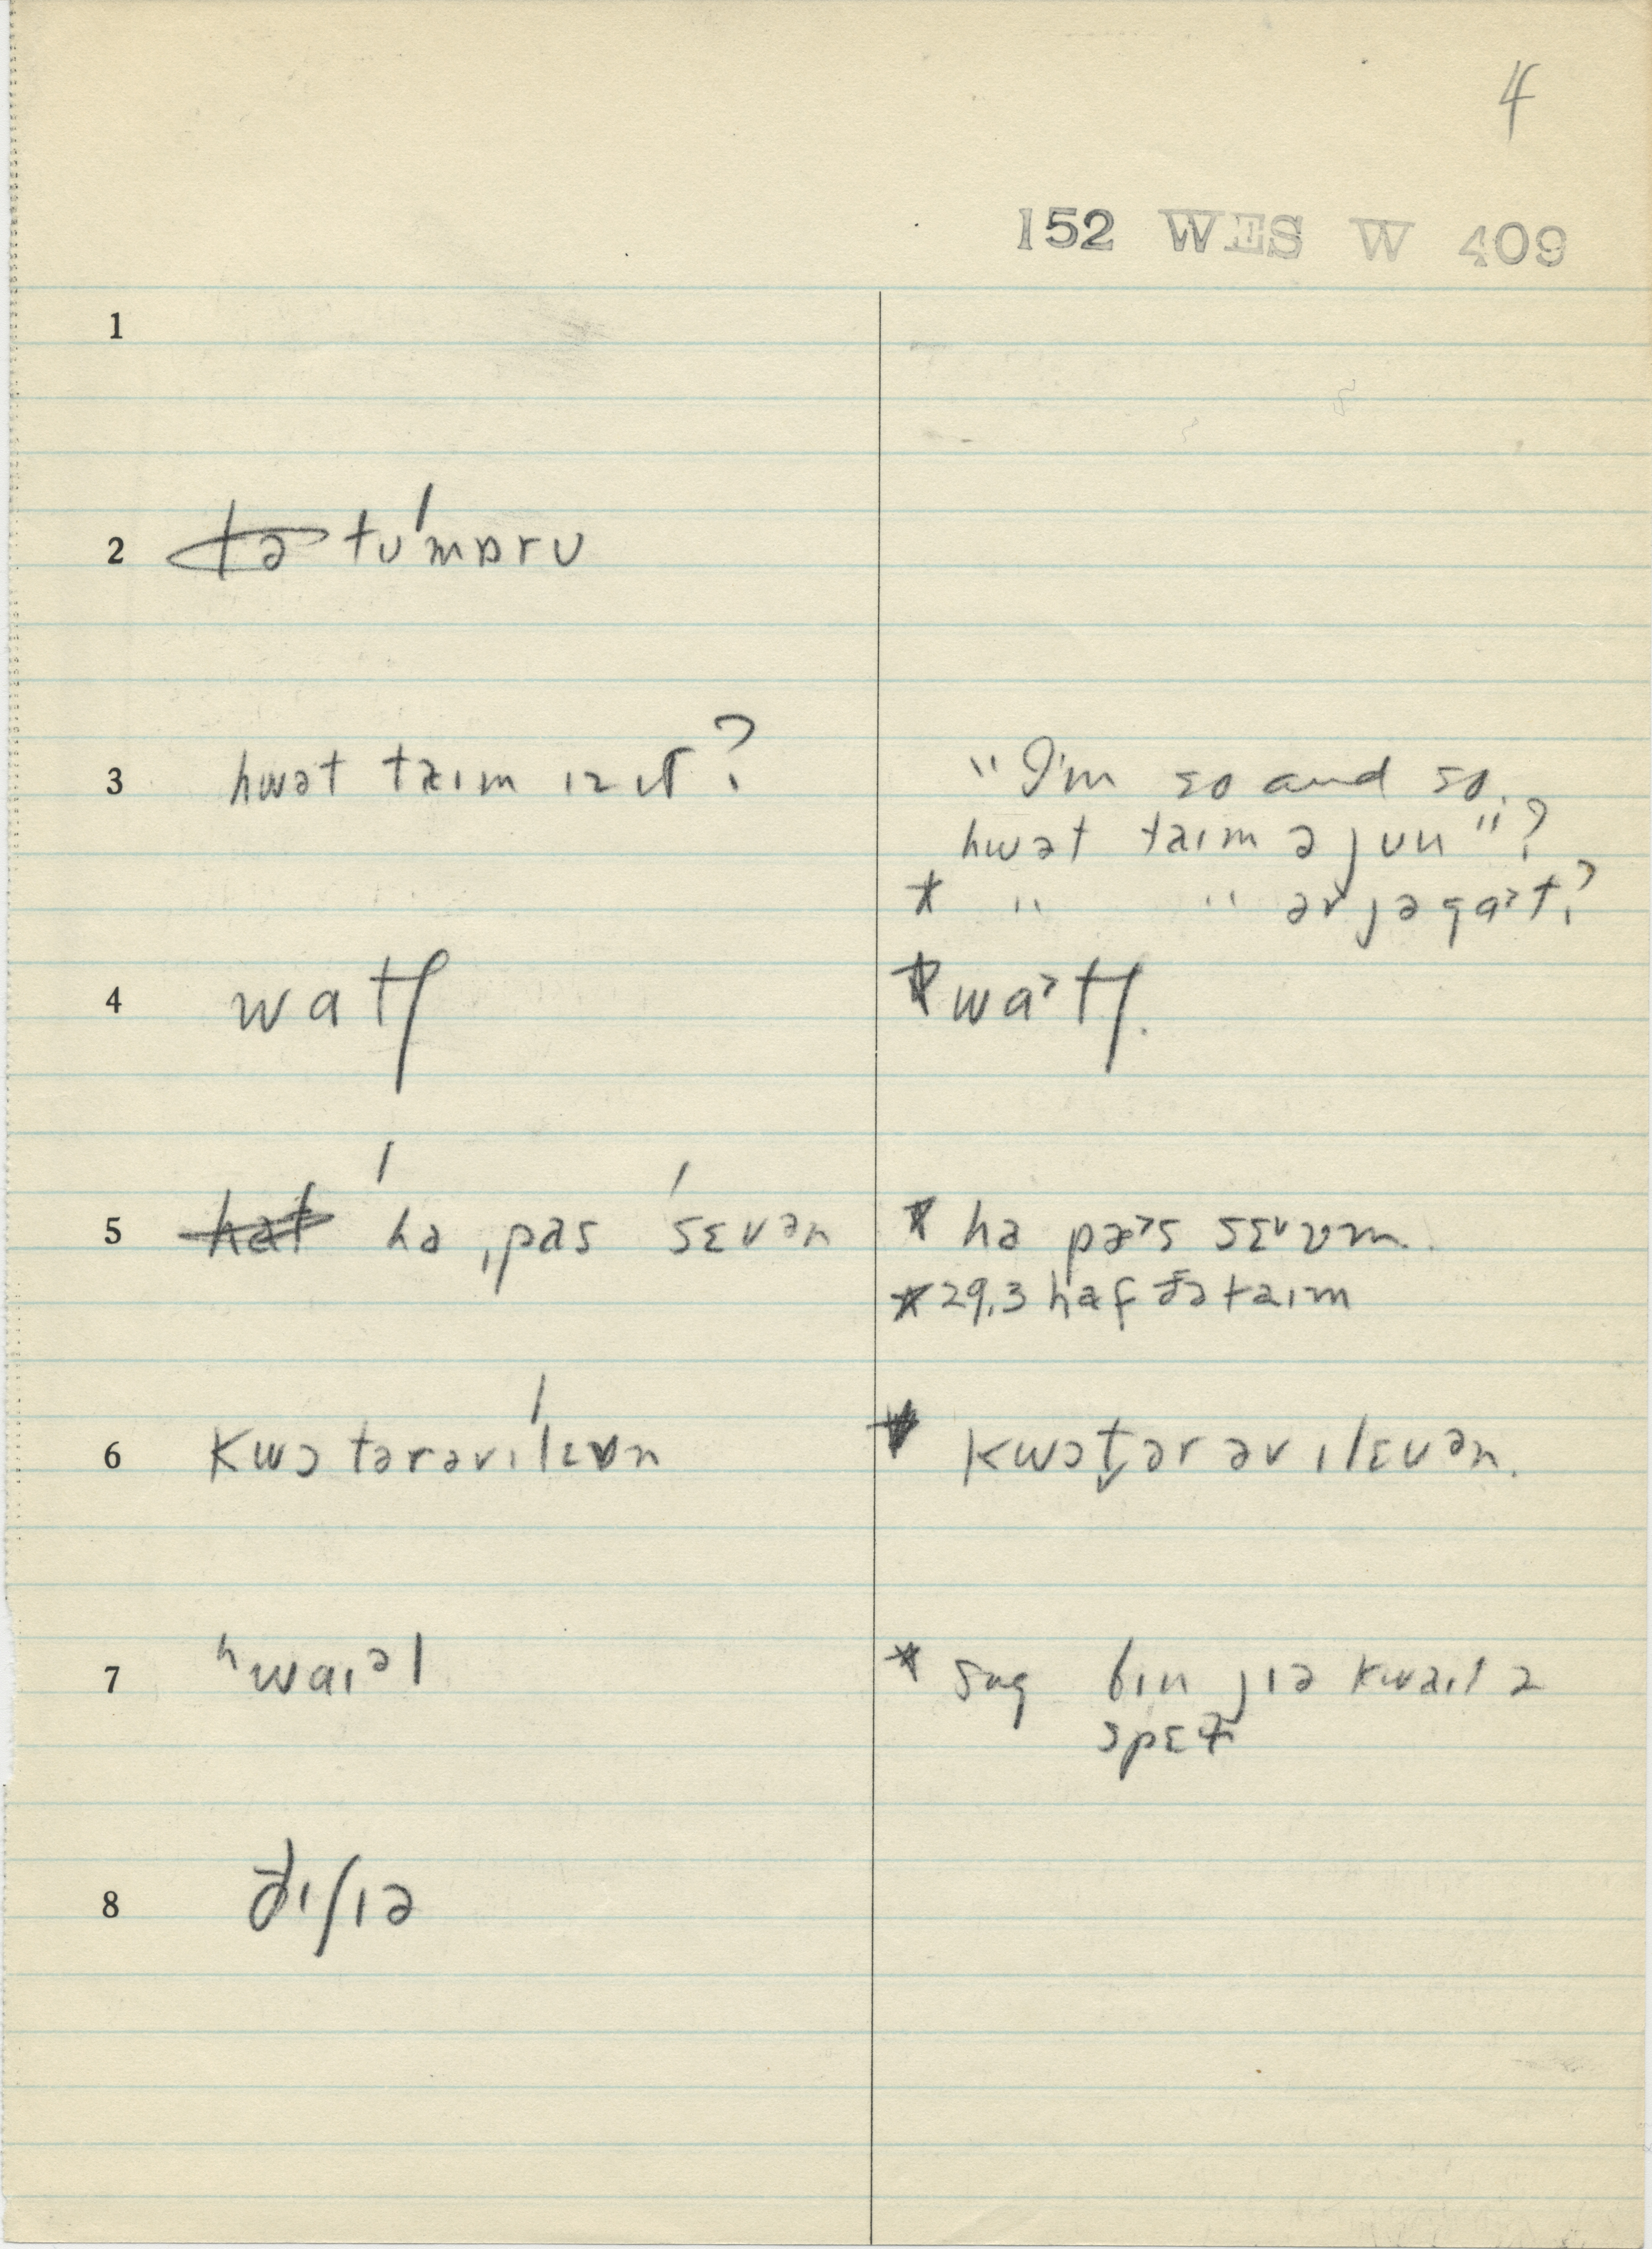 4
152 WES W 409
1
2 tə tuˈmɒru
3 hwət taɪm ɪz ɪt?
"I'm so and so.
hwət taɪm ə jun"?
* " " əv jə gaᵊt?
4 watʃ
* waᵊtʃ.
5 hat ˈha ˌpas ˈsɛvən
* ha pæᵊs sɛvm.
* 29.3 haf ðə taɪm
6 kwɔtərəvɪˈlɛvən
* kwɔt̬ər əv ɪlɛvən.
7 ʰwaɪᵊl
* bɪn jɪə kwaɪl ə
spɛɫ
8 ðɪʃɪə